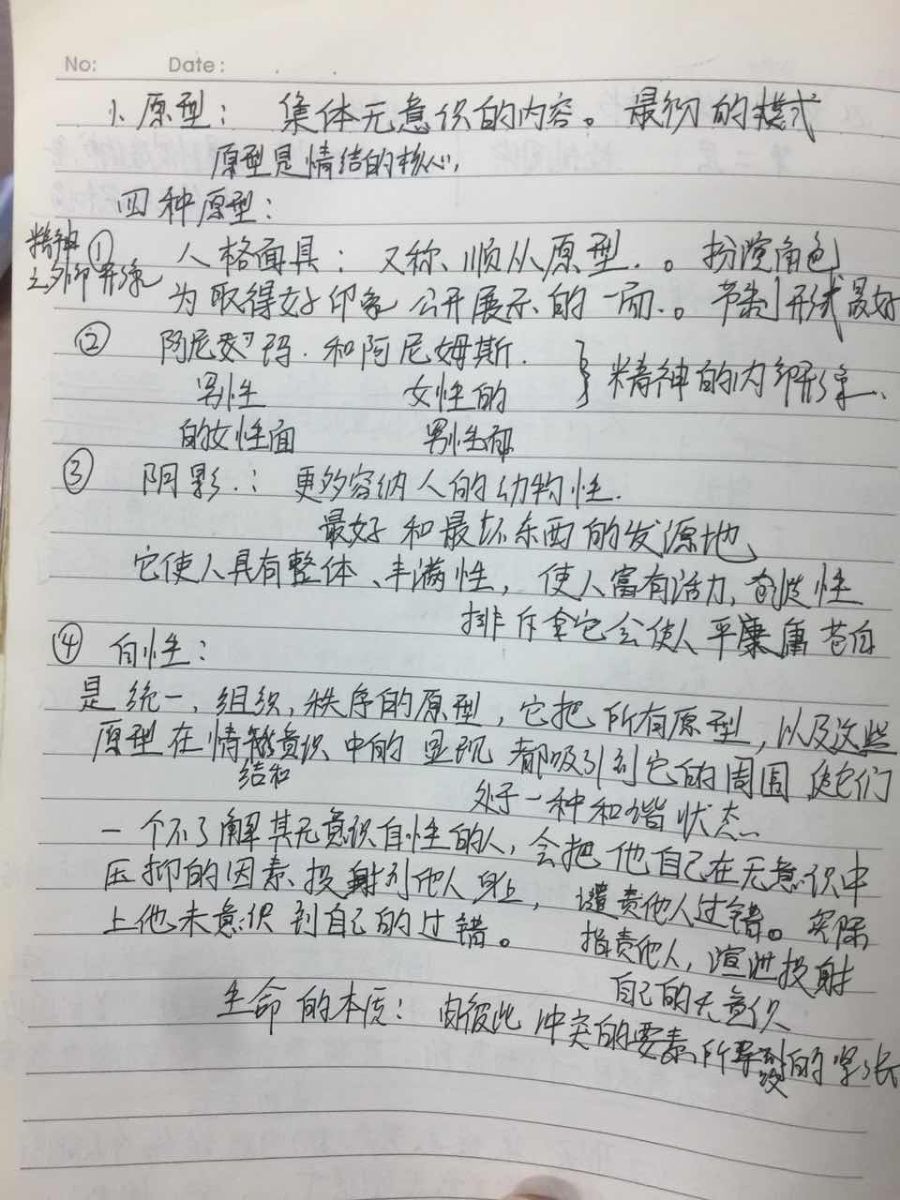 No:    Date:
1. 原型： 集体无意识的内容。 最初的模式
原型是情结的核心，
四种原型：
精神
之外部形象
① 人格面具： 又称、顺从原型。。 扮演角色
为取得好印象 公开展示的一面。。 节制形式最好
② 阿尼玛. 和阿尼姆斯. } 精神的内部形象、
男性 女性的
的女性面 男性面
③ 阴影.： 更多容纳人的动物性.
最好和最坏东西的发源地
它使人具有整体、丰满性， 使人富有活力、创造性
排斥它会使人平庸 苍白
④ 自性：
是统一，组织，秩序的原型，它把所有原型，以及这些
原型在情结和意识中的显现 都吸引到它的周围，使它们
处于一种和谐状态
一个不了解其无意识自性的人，会把他自己在无意识中
压抑的因素、投射到他人身上， 谴责他人过错。 实际
上他未意识到自己的过错。 指责他人，渲泄投射
自己的无意识
生命的本质： 由彼此冲突的要素所导致的紧张